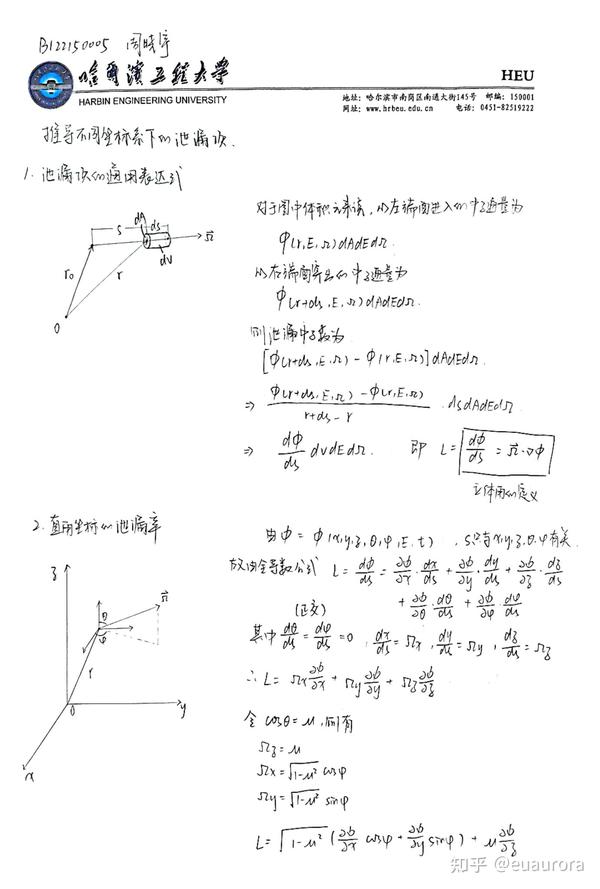 B122150005 周晓宇
哈尔滨工程大学
HARBIN ENGINEERING UNIVERSITY
HEU
地址: 哈尔滨市南岗区南通大街145号 邮编: 150001
网址: www.hrbeu.edu.cn 电话: 0451-82519222
推导不同坐标系下的泄漏项.
1. 泄漏项的通用表达式
S dA ds Ω⃗
dv
r₀ r
0
对于图中体积元来说,从左端面进入的中子通量为
φ(r,E,Ω)dAdEdΩ.
从右端面穿出的中子通量为
φ(r+ds,E,Ω)dAdEdΩ.
则泄漏中子数为
[φ(r+ds,E,Ω) - φ(r,E,Ω)]dAdEdΩ.
⇒ (φ(r+ds,E,Ω) - φ(r,E,Ω))/(r+ds-r) · dsdAdEdΩ
⇒ dφ/ds dvdEdΩ. 即 L = dφ/ds = Ω⃗·∇φ
2. 直角坐标的泄漏率
z Ω⃗
θ
φ
r
0 y
x
由φ = φ(x,y,z,θ,φ,E,t), s只与x,y,z,θ,φ有关.
故由全导数公式 L = dφ/ds = ∂φ/∂x · dx/ds + ∂φ/∂y · dy/ds + ∂φ/∂z · dz/ds
+ ∂φ/∂θ · dθ/ds + ∂φ/∂φ · dφ/ds
(正交)
其中 dθ/ds = dφ/ds = 0, dx/ds = Ωx, dy/ds = Ωy, dz/ds = Ωz
∴ L = Ωx ∂φ/∂x + Ωy ∂φ/∂y + Ωz ∂φ/∂z
令 cosθ = μ, 则有
Ωz = μ
Ωx = √(1-μ²) cosφ
Ωy = √(1-μ²) sinφ
L = √(1-μ²) (∂φ/∂x cosφ + ∂φ/∂y sinφ) + μ ∂φ/∂z
知乎 @euaurora